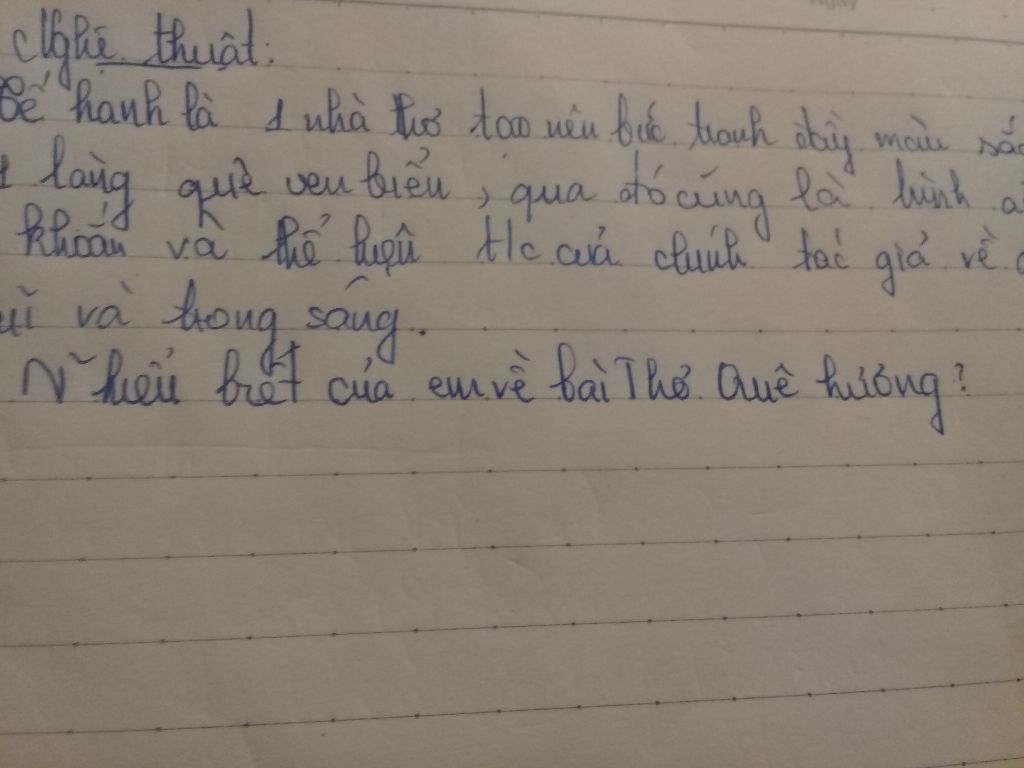 Nghệ thuật:
Bế hanh là 1 nhà thơ tạo nên bức tranh đầy màu sắ
làng quê ven biển, qua đó cũng là hình
khoắn và thể hiện t/c của chính tác giả về
và trong sáng.
IV hiểu biết của em về bài Thơ Quê hương?